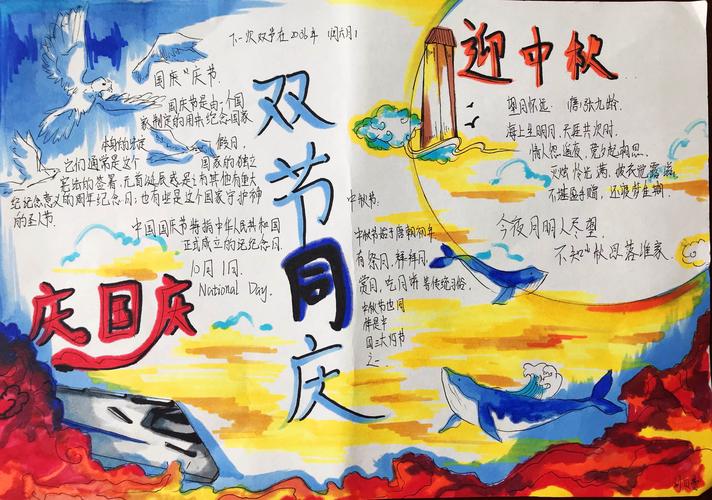 下一次双节在2036年
国庆"庆节.
国庆节是由一个国
家制定的用来纪念国家
本身的 假日.
它们通常是这个 国家的独立
宪法的签署、元首诞辰或是其他有重大
纪念意义的周年纪念日;也有些是这个国家守护神
的圣人节.
中国国庆节特指中华人民共和国
正式成立的纪念日
10月1日.
National Day.
庆国庆
双节同庆
迎中秋
望月怀远 唐:张九龄.
海上生明月,天涯共次时.
情人怨遥夜,竟夕起相思.
灭烛怜光满,披衣觉露滋
不堪盈手赠,还寝梦佳期.
今夜月明人尽望
不知秋思落谁家.
中秋节:
中秋节始于唐朝初年
有祭月、拜月、
赏月、吃月饼等传统习俗.
中秋节也同
样是中
国三大灯节
之一.